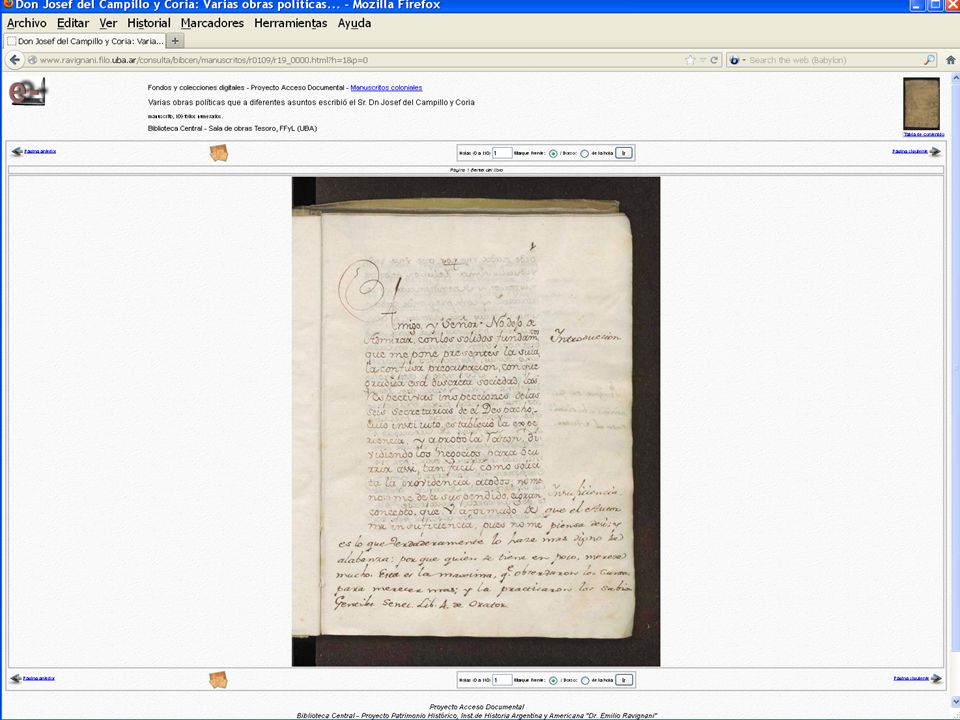 Don Josef del Campillo y Coria: Varias obras políticas... - Mozilla Firefox
Archivo Editar Ver Historial Marcadores Herramientas Ayuda
Don Josef del Campillo y Coria: Varia...
www.ravignani.filo.uba.ar/consulta/bibcen/manuscritos/r0109/r19_0000.html?h=1&p=0
Search the web (Babylon)
Fondos y colecciones digitales - Proyecto Acceso Documental - Manuscritos coloniales
Varias obras políticas que a diferentes asuntos escribió el Sr. Dn Josef del Campillo y Coria
manuscrito, 109 folios numerados.
Biblioteca Central - Sala de obras Tesoro, FFyL (UBA)
Tabla de contenido
Página anterior
Hojas (0 a 110): 1 Marque Frente: / Dorso: de la hoja Ir
Página siguiente
Página 1 frente del libro
1
Amigo, y Señor. No dejo de
Admirar, con los solidos fundam
que me pone presentes la suia
la confusa preocupacion, con que
gradúa esa discreta sociedad, las
respectivas inspecciones de las
seis Secretarias de el Despacho,
cuio instituto, establecio la expe
riencia, y aprobo la razon, di
vidiendo los negocios, para
assi, tan facil, como solici
ta la providencia, a todos;
no me deja suspendido, el gran
concepto, que V. a formado de
mi insuficiencia, pues no me piensa
es lo que verdaderamente lo haze mas digno de
alabanza: porque quien se tiene en poco, merece
mucho. Esta es la maxima, qe. observaron los
para merecer mas; y la practicaron los Sabios
Gentiles Senec. Lib. 4. de Orator
Introduccion
Insuficiencia
que el Autor
Página anterior
Hojas (0 a 110): 1 Marque Frente: / Dorso: de la hoja Ir
Página siguiente
Proyecto Acceso Documental
Biblioteca Central - Proyecto Patrimonio Histórico, Inst.de Historia Argentina y Americana "Dr. Emilio Ravignani"